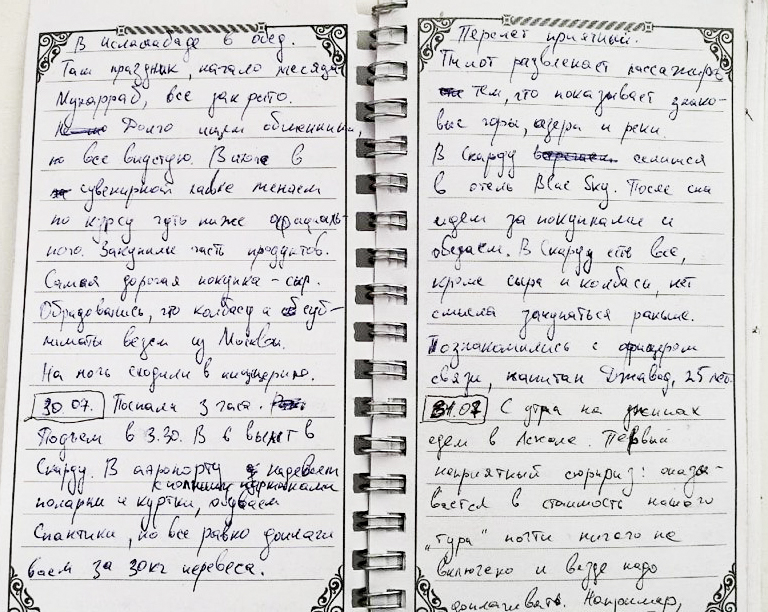 В Исламабаде в обед.
Там праздник, начало месяца
Мухарраб, все закрыто.
Долго ищем обменники,
но все впустую. В итоге в
сувенирной лавке меняем
по курсу чуть ниже официаль-
ного. Закупили часть продуктов.
Самая дорогая покупка - сыр.
Обрадовались, что колбасу и суб-
лиматы везем из Москвы.
На ночь сходили в пиццерию.
30.07. Поспали 3 часа.
Подъем в 3.30. В 6 вылет в
Скарду. В аэропорту надеваем
поларки и куртки,
Спантики, но все равно доплачи
ваем за 30кг перевеса.
Перелет приятный.
Пилот развлекает пассажиров
тем, что показывает знако-
вые горы, озера и реки.
В Скарду селимся
в отель Blue Sky. После сна
идем за покупками и
обедаем. В Скарду есть все,
кроме сыра и колбасы, нет
смысла закупаться раньше.
Познакомились с офицером
связи, капитан Джавад, 25 лет.
31.07 С утра на джипах
едем в Асколе. Первый
неприятный сюрприз: оказы-
вается в стоимость нашего
"тура" почти ничего не
включено и везде надо
доплачивать. Например,